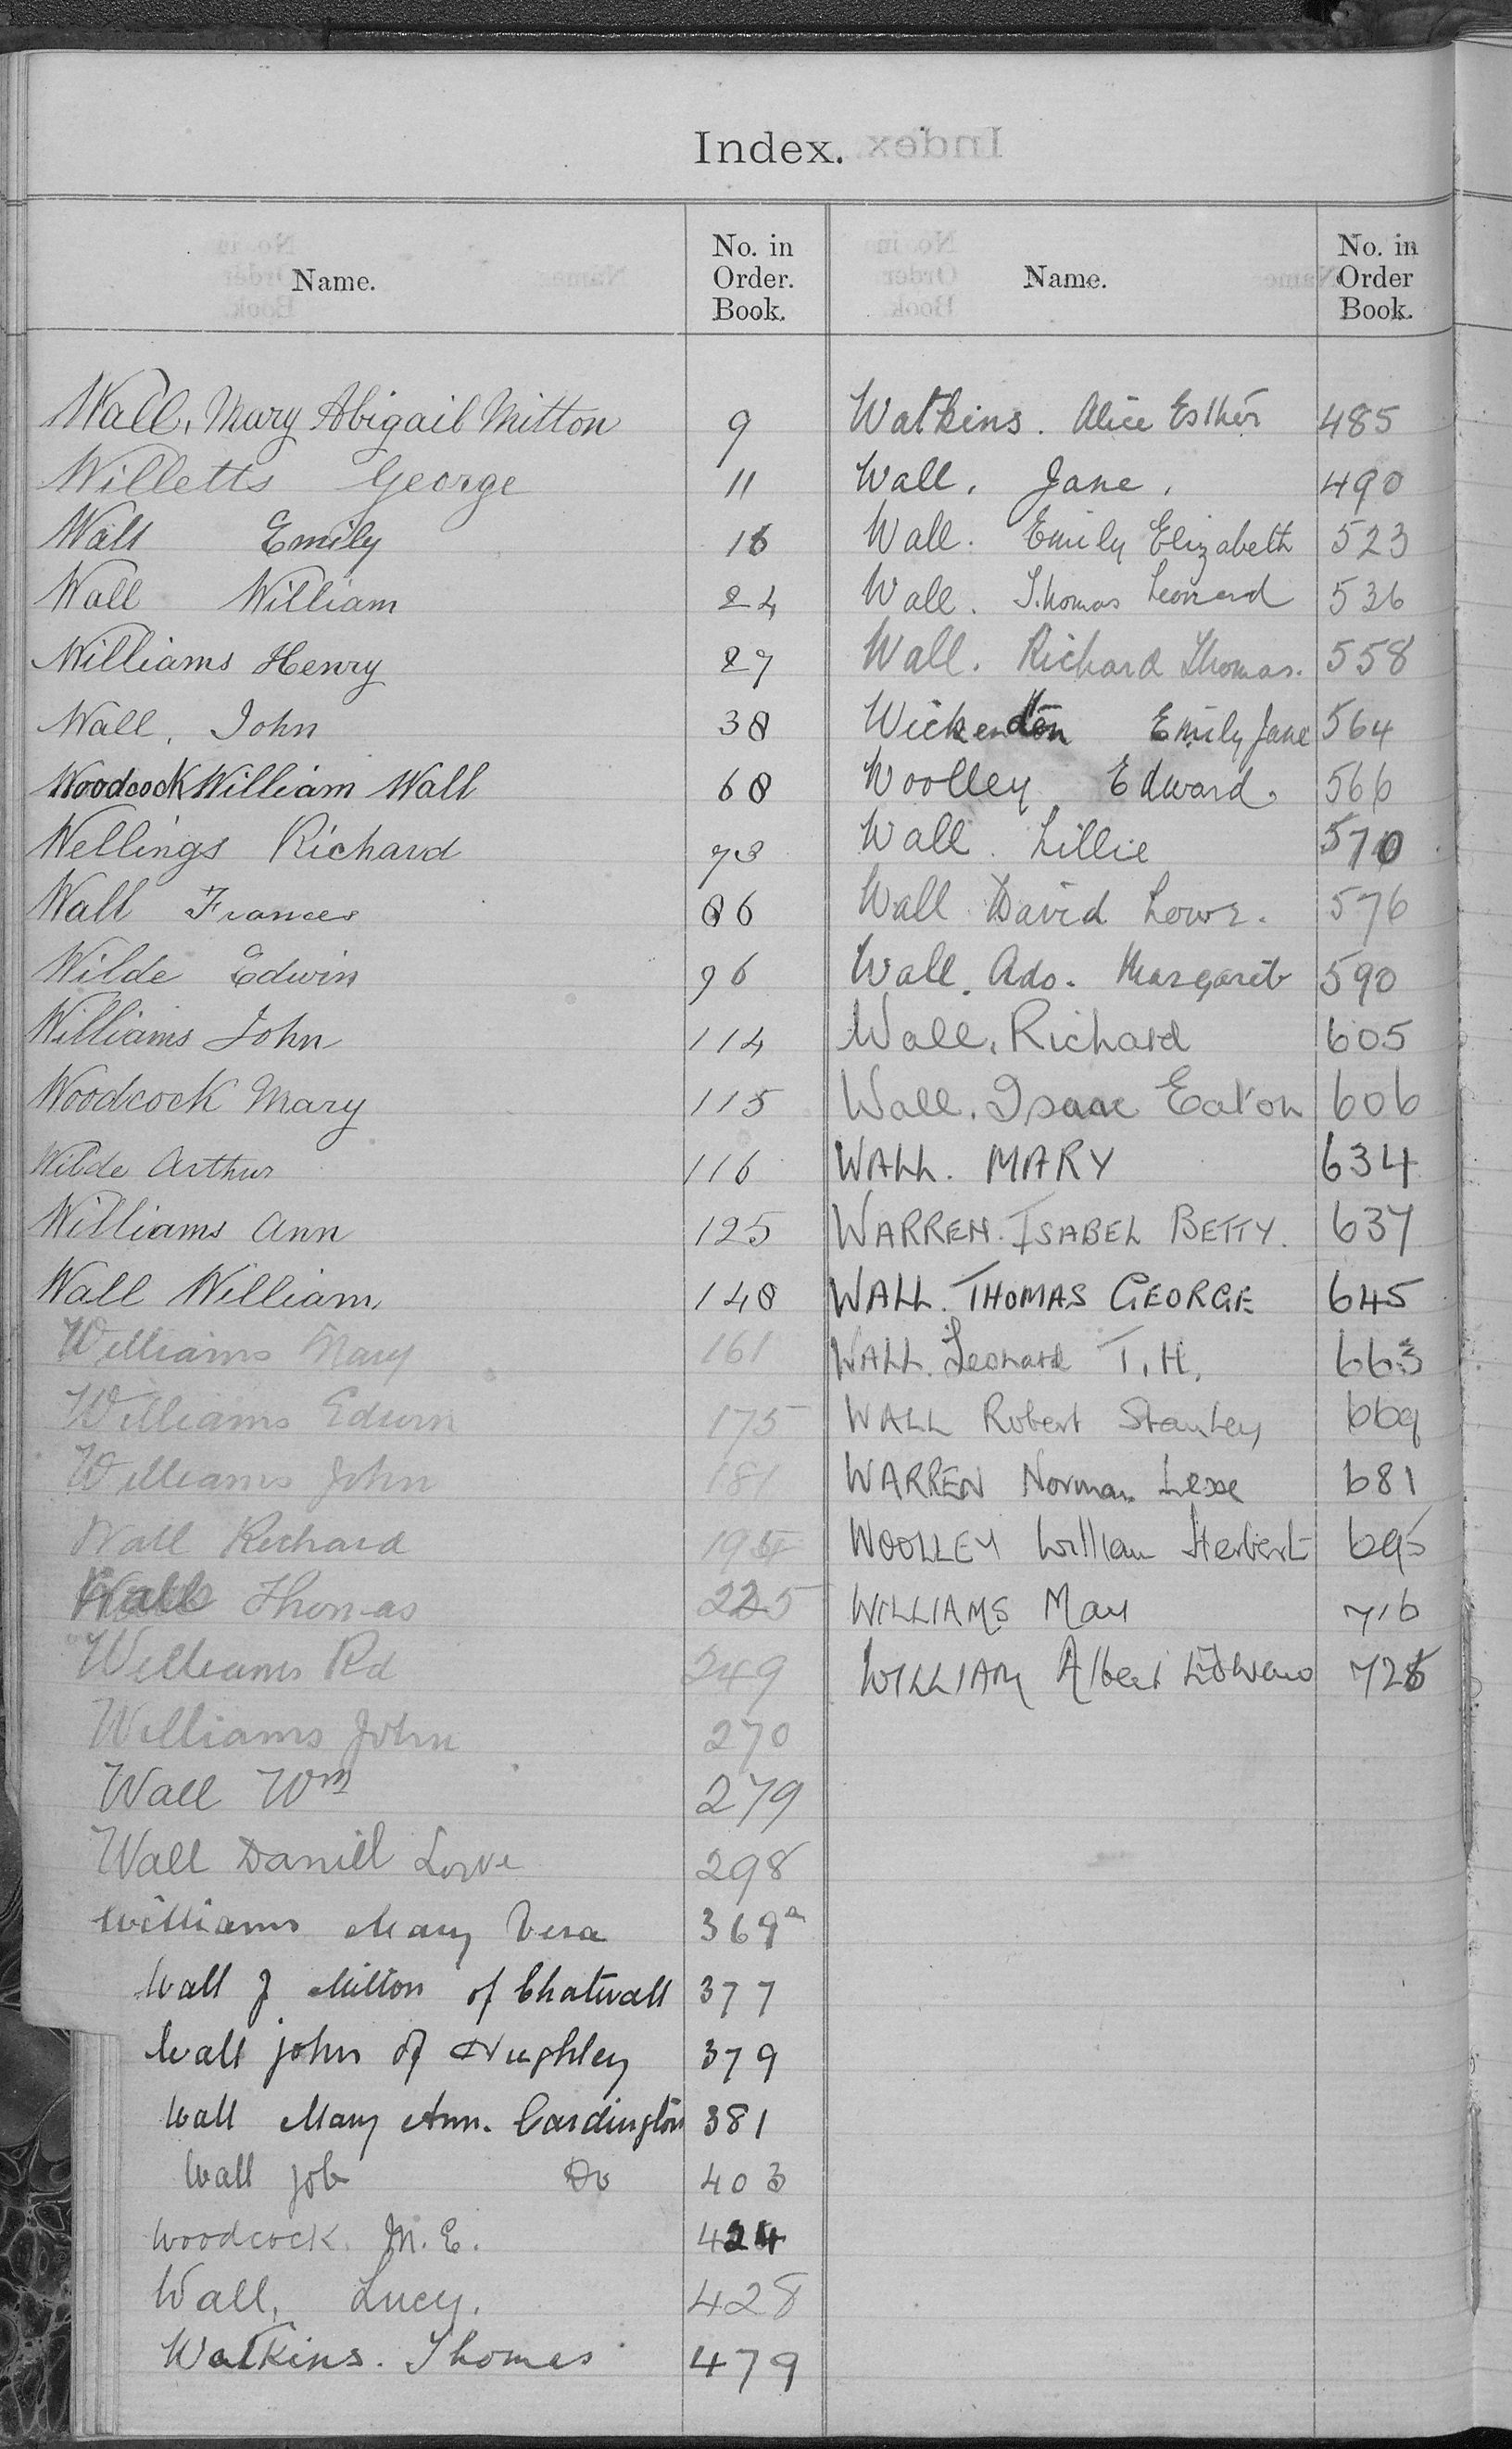 Index.
Name.
No. in
Order.
Book.
Wall, Mary Abigail Mitton 9
Willetts George 11
Wall Emily 16
Wall William 24
Williams Henry 27
Wall, John 38
Woodcock William Wall 68
Wellings Richard 73
Wall Frances 86
Wilde Edwin 96
Williams John 114
Woodcock Mary 115
Wilde Arthur 116
Williams Ann 125
Wall William 148
Williams Mary 161
Williams Edwin 175
Williams John 181
Wall Richard
Wall Thomas 225
Williams Rd 249
Williams John 270
Wall Wm 279
Wall Daniel Lowe 298
Williams Mary Vera 369a
Wall J Mitton of Chatwall 377
Wall John of Hughley 379
Wall Mary Ann. Cardington 381
Wall Job Do 403
Woodcock. M. E. 424
Wall, Lucy. 428
Watkins. Thomas 479
Name.
No. in
Order
Book.
Watkins. Alice Esther 485
Wall, Jane, 490
Wall. Emily Elizabeth 523
Wall. Thomas Leonard 536
Wall. Richard Thomas. 558
Wickenden Emily Jane 564
Woolley Edward. 566
Wall. Lillie 570
Wall David Lowe. 576
Wall. Ada. Margaret 590
Wall, Richard 605
Wall, Isaac Eaton 606
WALL. MARY 634
WARREN. ISABEL BETTY. 637
WALL. THOMAS GEORGE 645
WALL. Leonard T. H. 663
WALL Robert Stanley 669
WARREN Norman 681
WOOLLEY William Herbert 695
WILLIAMS May 716
WILLIAMS Albert Edward 725